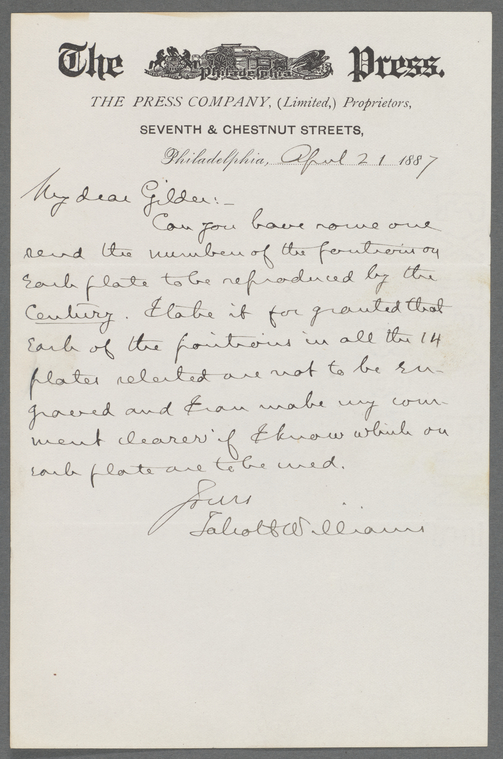 The Philadelphia Press.
THE PRESS COMPANY, (Limited,) Proprietors,
SEVENTH & CHESTNUT STREETS,
Philadelphia, April 21 1887
My dear Gilder:—
Can you have some one
send the number of the positions on
each plate to be reproduced by the
Century. I take it for granted that
each of the positions in all the 14
plates selected are not to be en-
graved and I can make my com-
ment clearer if I know which on
each plate are to be used.
Yours
Talcott Williams